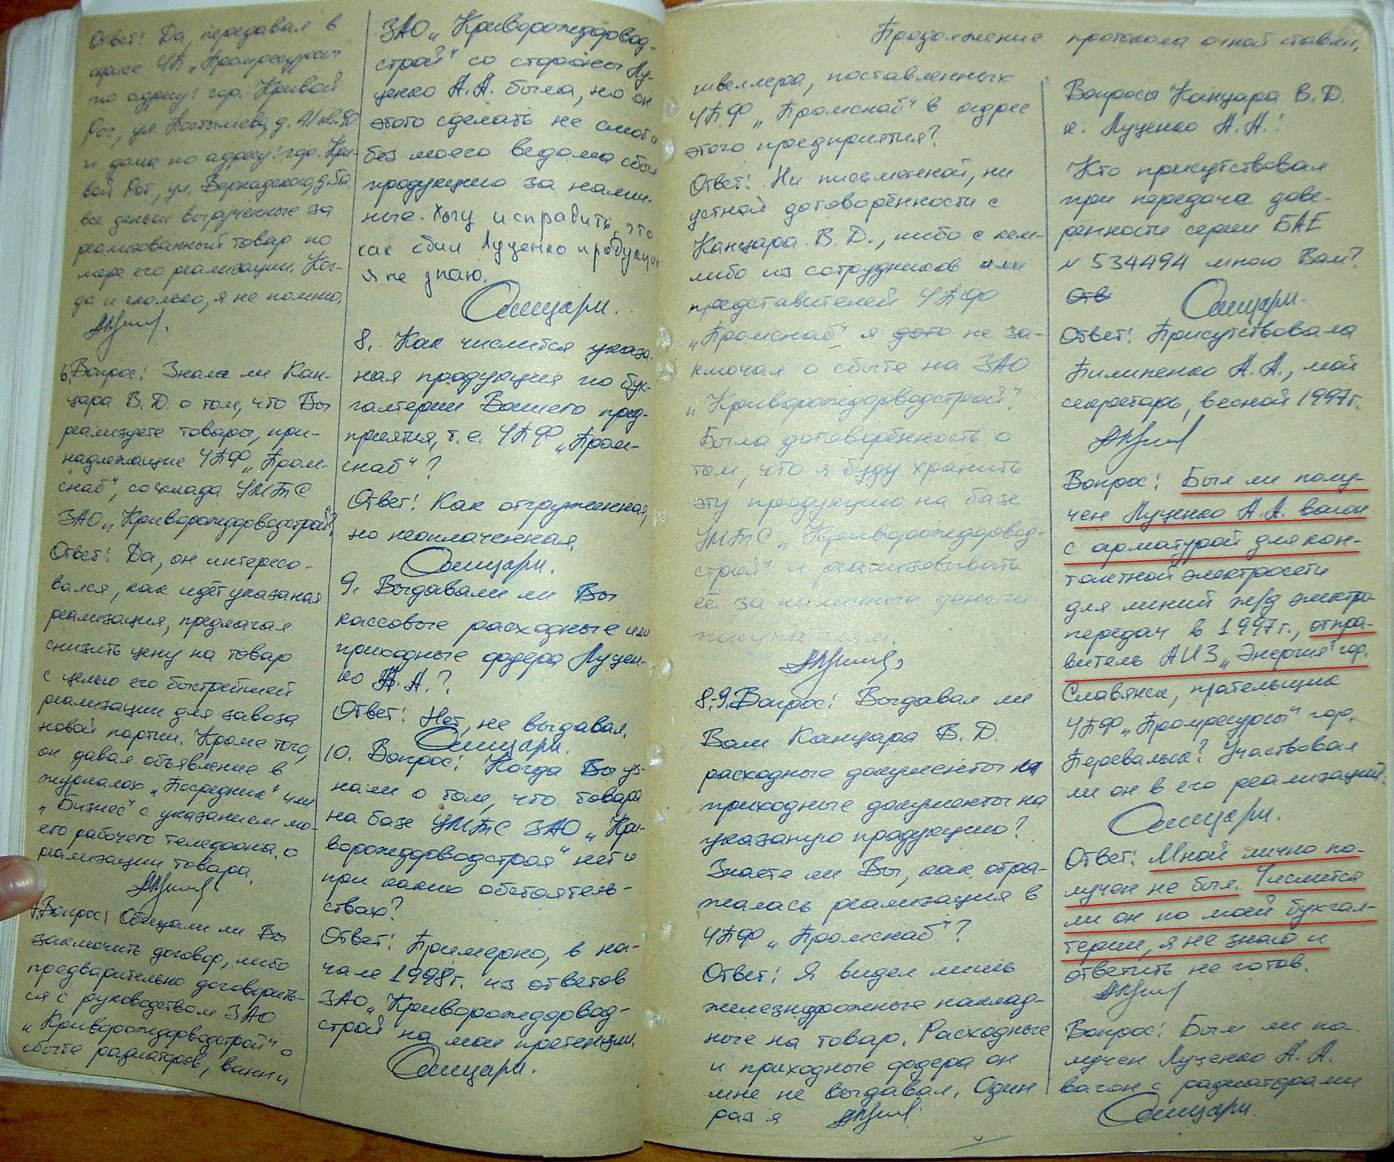 Ответ: Да, передавал в
офисе ЧП „Промресурсы"
по адресу: гор. Кривой
Рог, ул. Постышева, д. 41 кв. 90
и дома по адресу: гор. Кри-
вой Рог, ул. Вернадского,
все деньги вырученные за
реализованный товар по
мере его реализации. Ког-
да и сколько, я не помню.
6. Вопрос: Знал ли Кан-
цара В. Д. о том, что Вы
реализуете товары, при-
надлежащие ЧПФ „Пром-
снаб", со склада УМТС
ЗАО „Криворождорводстрой"?
Ответ: Да, он интересо-
вался, как идёт указаная
реализация, предлагая
снизить цену на товар
с целью его быстрейшей
реализации для завоза
новой партии. Кроме того,
он давал объявление в
журналах „Посредник" или
„Бизнес" с указанием мо-
его рабочего телефона о
реализации товара.
7. Вопрос: Обещали ли Вы
заключить договор, либо
предварительно договорить-
ся с руководством ЗАО
„Криворождорводстрой" о
сбыте радиаторов, ванн и
ЗАО „Криворождорвод-
строй" со стороны Лу-
ценко А. А. была, но он
этого сделать не смог и
без моего ведома сбыл
продукцию за налич-
ные. Хочу исправить, что
как сбыл Луценко продукцию
я не знаю.
8. Как числится указа-
ная продукция по бух-
галтерии Вашего пред-
приятия, т. е. ЧПФ „Пром-
снаб"?
Ответ: Как отгруженная,
но неоплаченная.
9. Выдавали ли Вы
кассовые расходные или
приходные ордера Луцен-
ко А. А.?
Ответ: Нет, не выдавал.
10. Вопрос: Когда Вы уз-
нали о том, что товара
на базе УМТС ЗАО „Кри-
ворождорводстрой" нет и
при каких обстоятель-
ствах?
Ответ: Примерно, в на-
чале 1998г. из ответов
ЗАО „Криворождорвод-
строй на мои претензии.
Продолжение протокола очной ставки.
швеллера, поставленных
ЧПФ „Промснаб" в адрес
этого предприятия?
Ответ: Ни письменной, ни
устной договорённости с
Канцара В. Д., либо с кем-
либо из сотрудников или
представителей ЧПФ
„Промснаб" я не за-
ключал о сбыте на ЗАО
„Криворождорводстрой".
Была договорённость о
том, что я буду хранить
эту продукцию на базе
УМТС „Криворождорвод-
строй" и реализовывать
её за наличные деньги
покупателям.
8.9. Вопрос: Выдавал ли
Вам Канцара В. Д.
расходные документы и
приходные документы на
указаную продукцию?
Знаете ли Вы, как отра-
жалась реализация в
ЧПФ „Промснаб"?
Ответ: Я видел лишь
железнодорожные наклад-
ные на товар. Расходные
и приходные ордера он
мне не выдавал. Один
раз я
Вопросы Канцара В. Д.
к. Луценко А. А.:
Кто присутствовал
при передача дове-
ренности серии БАЕ
№ 534494 мною Вам?
Отв
Ответ: Присутствовала
Пилипенко А. А., мой
секретарь, весной 1997г.
Вопрос: Был ли полу-
чен Луценко А. А. вагон
с арматурой для кон-
тактной электросети
для линий ж/д электро-
передач в 1997г., отпра-
витель АИЗ „Энергия" гор.
Славянск, плательщик
ЧПФ „Промресурсы" гор.
Перевальск? Участвовал
ли он в его реализации?
Ответ: Мной лично по-
лучен не был. Числится
ли он по моей бухгал-
терии, я не знаю и
ответить не готов.
Вопрос: Был ли по-
лучен Луценко А. А.
вагон с радиаторами